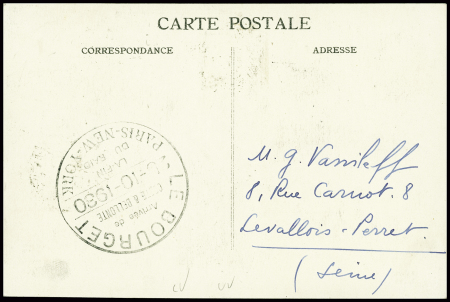 CARTE POSTALE
CORRESPONDANCE
ADRESSE
LE BOURGET
PARIS-NEW-YORK
-10-1930
Arrivée de
COSTE & BELLONTE
M. G. Vassileff
8, Rue Carnot. 8
Levallois-Perret.
(Seine)